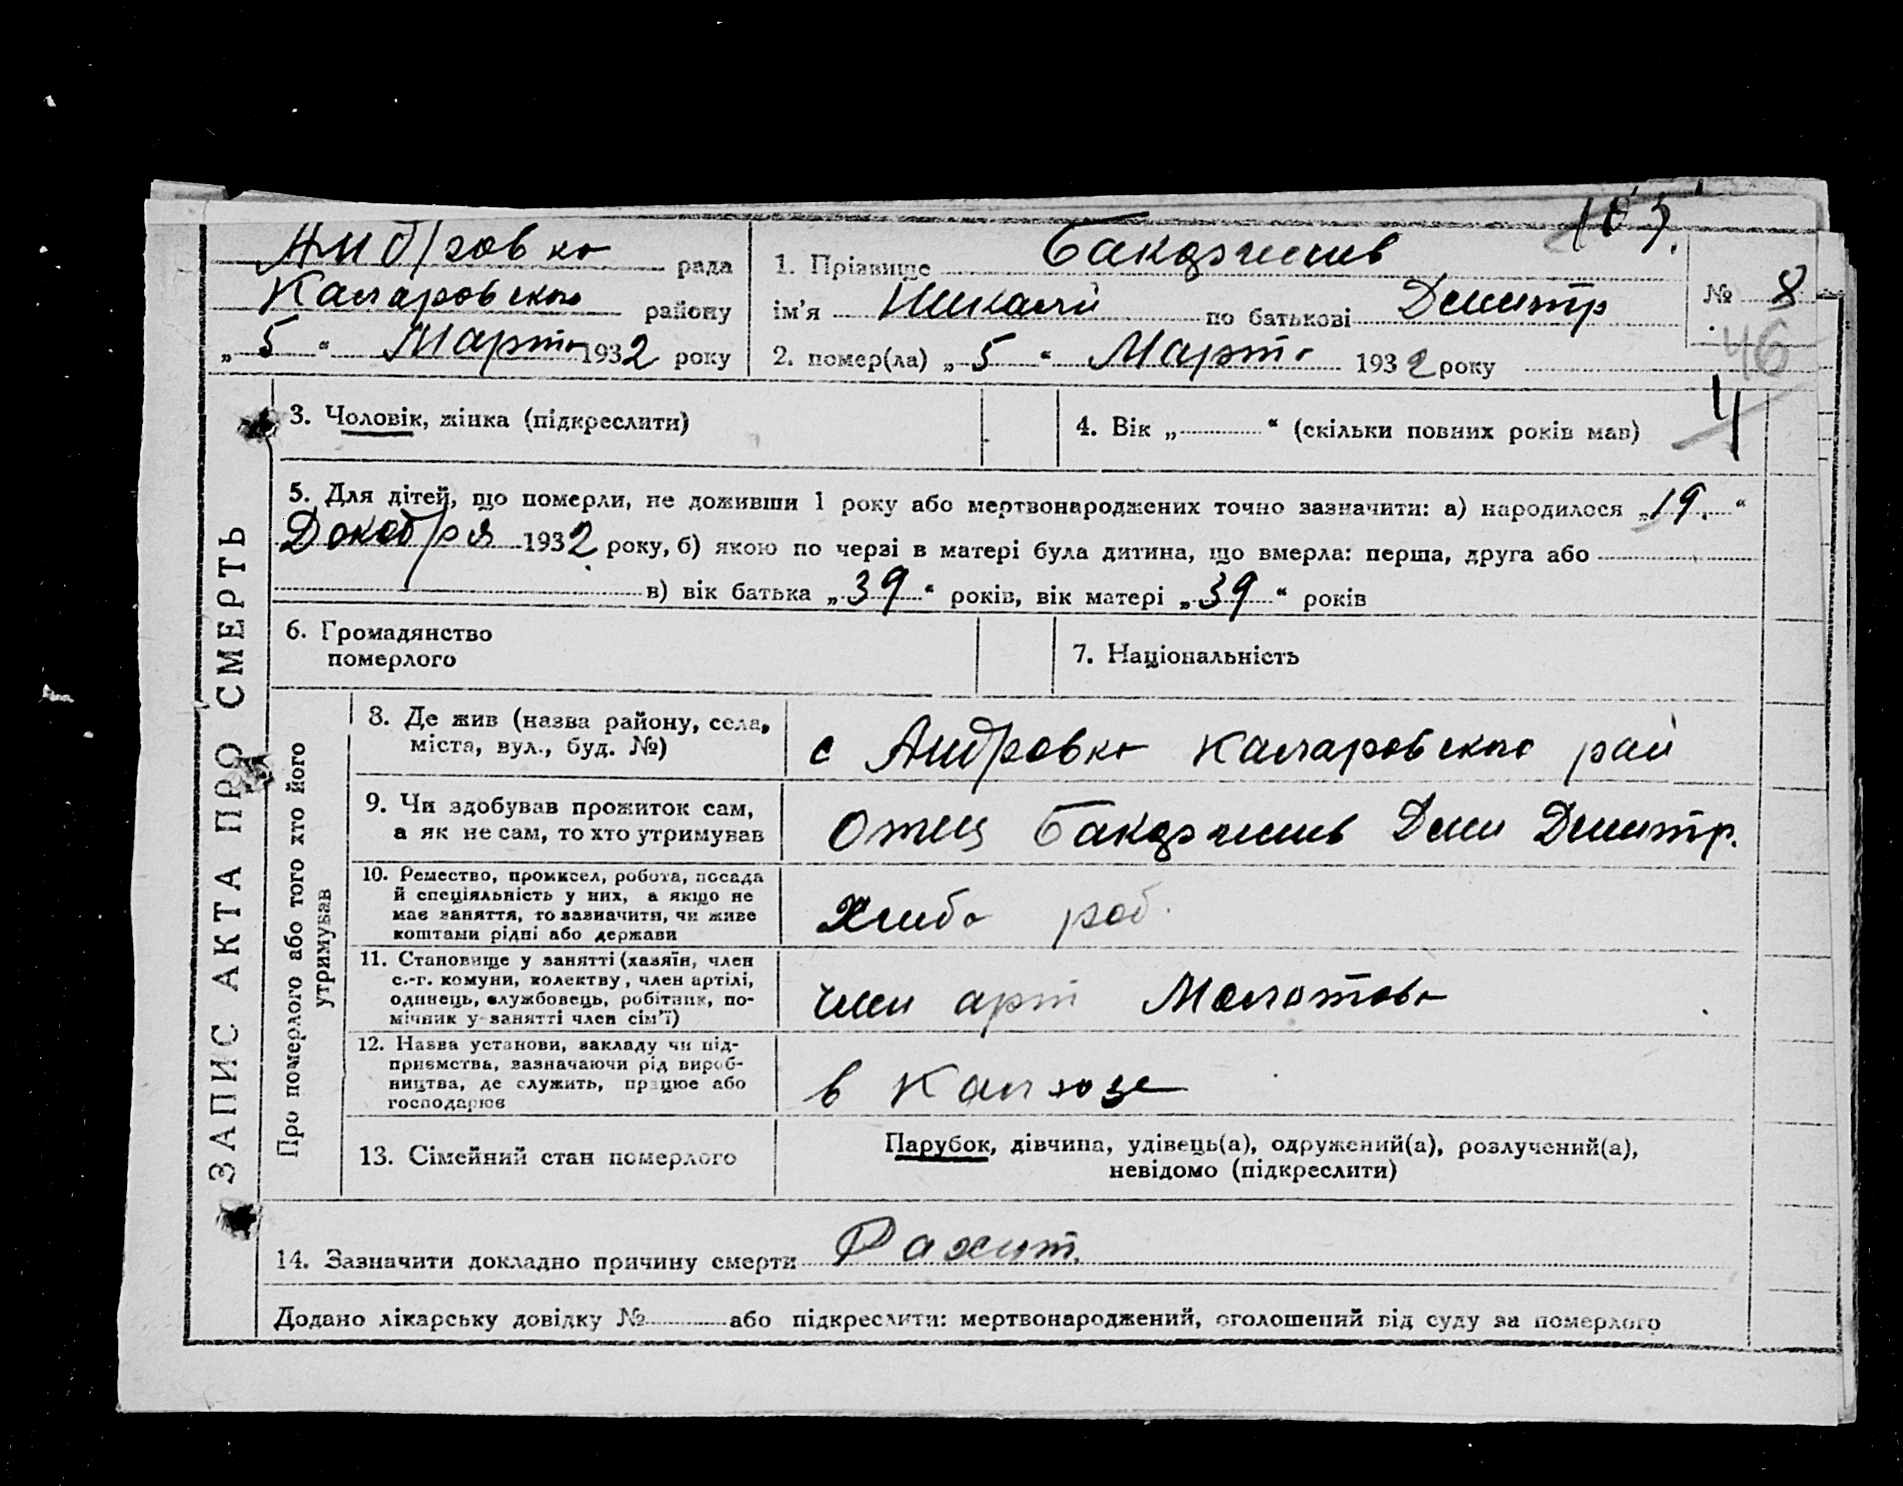 103.
Андровка рада
Коларовского району
„5“ Марта 1932 року
1. Прізвище Бакарджиев
ім'я Николай по батькові Дмитр
2. помер(ла) „5“ Марта 1932 року
№ 8
46
3. Чоловік, жінка (підкреслити)
4. Вік „ “ (скільки повних років мав)
5. Для дітей, що померли, не доживши 1 року або мертвонароджених точно зазначити: а) народилося „19.“
Декабря 1932 року, б) якою по черзі в матері була дитина, що вмерла: перша, друга або
в) вік батька „39“ років, вік матері „39“ років
6. Громадянство
померлого
7. Національність
ЗАПИС АКТА ПРО СМЕРТЬ
Про померлого або того хто його
утримував
8. Де жив (назва району, села,
міста, вул., буд. №)
с Андровка Коларовского рай
9. Чи здобував прожиток сам,
а як не сам, то хто утримував
Отец Дмитр.
10. Ремество, промисел, робота, посада
й спеціяльність у них, а якщо не
має заняття, то зазначити, чи живе
коштами рідні або держави
Хлибо роб.
11. Становище у занятті (хазяїн, член
с.-г. комуни, колективу, член артілі,
одинець, службовець, робітник, по-
мічник у занятті член сім'ї)
член арт Молотова
12. Назва установи, закладу чи під-
приємства, зазначаючи рід вироб-
ництва, де служить, працює або
господарює
в Колхозе
13. Сімейний стан померлого
Парубок, дівчина, удівець(а), одружений(а), розлучений(а),
невідомо (підкреслити)
14. Зазначити докладно причину смерти Рахит.
Додано лікарську довідку № або підкреслити: мертвонароджений, оголошений від суду за померлого